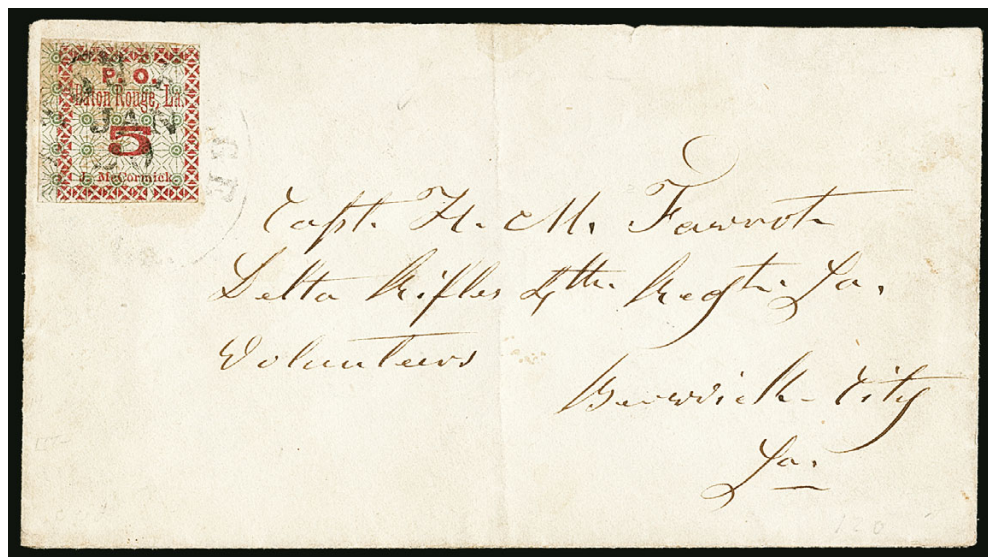 P. O.
Baton Rouge, La.
JAN
5
J. McCormick
Capt. H. M. Favrot
Delta Rifles 4th. Regt. La.
Volunteers
Berwick City
La.
120